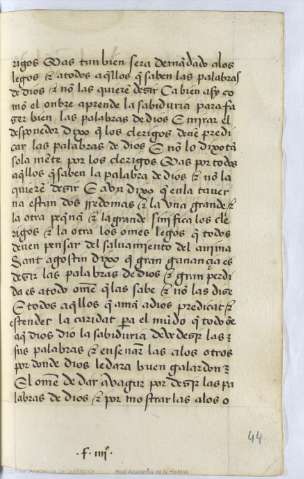 rigos Mas tanbien sera demãdado alos
legos & atodos aq̃llos q̃ saben las palabras
de dios & nõ las quierẽ dezir Ca bien asy co
mo el onbre aprende la sabiduria para fa
zer bien las palabras de dios E mirar el
desponedor dixo q̃ los clerigos deuẽ predi
car las palabras de dios E nõ lo dixo tã
sola mẽte por los clerigos Mas por todos
aq̃llos q̃ saben la palabra de dios & nõ la
quierẽ dezir E avn dixo q̃ en la tauer
na estan dos rredomas & la vna grande &
la otra peq̃na & la grande sinifica los cle
rigos & la otra los omẽs legos q̃ todos
deuen pensar del saluamiento del anima
Sant agostin dixo q̃ gran ganançia es
dezir las palabras de dios & gran perdi
da es atodo omẽ q̃ las sabe & nõ las dize
E todos aq̃llos q̃ amã adios predicar &
estender la caridat par̃a el mũdo q̃ todo õe
aq̃ dios dio la sabiduria deue dezir las
sus palabras & enseñar las alos otros
por donde dios le dara buen galardon &
El omẽ de dar a vagar por dezir las pa
labras de dios & por mostrar las alos o
44
.f. iiij.